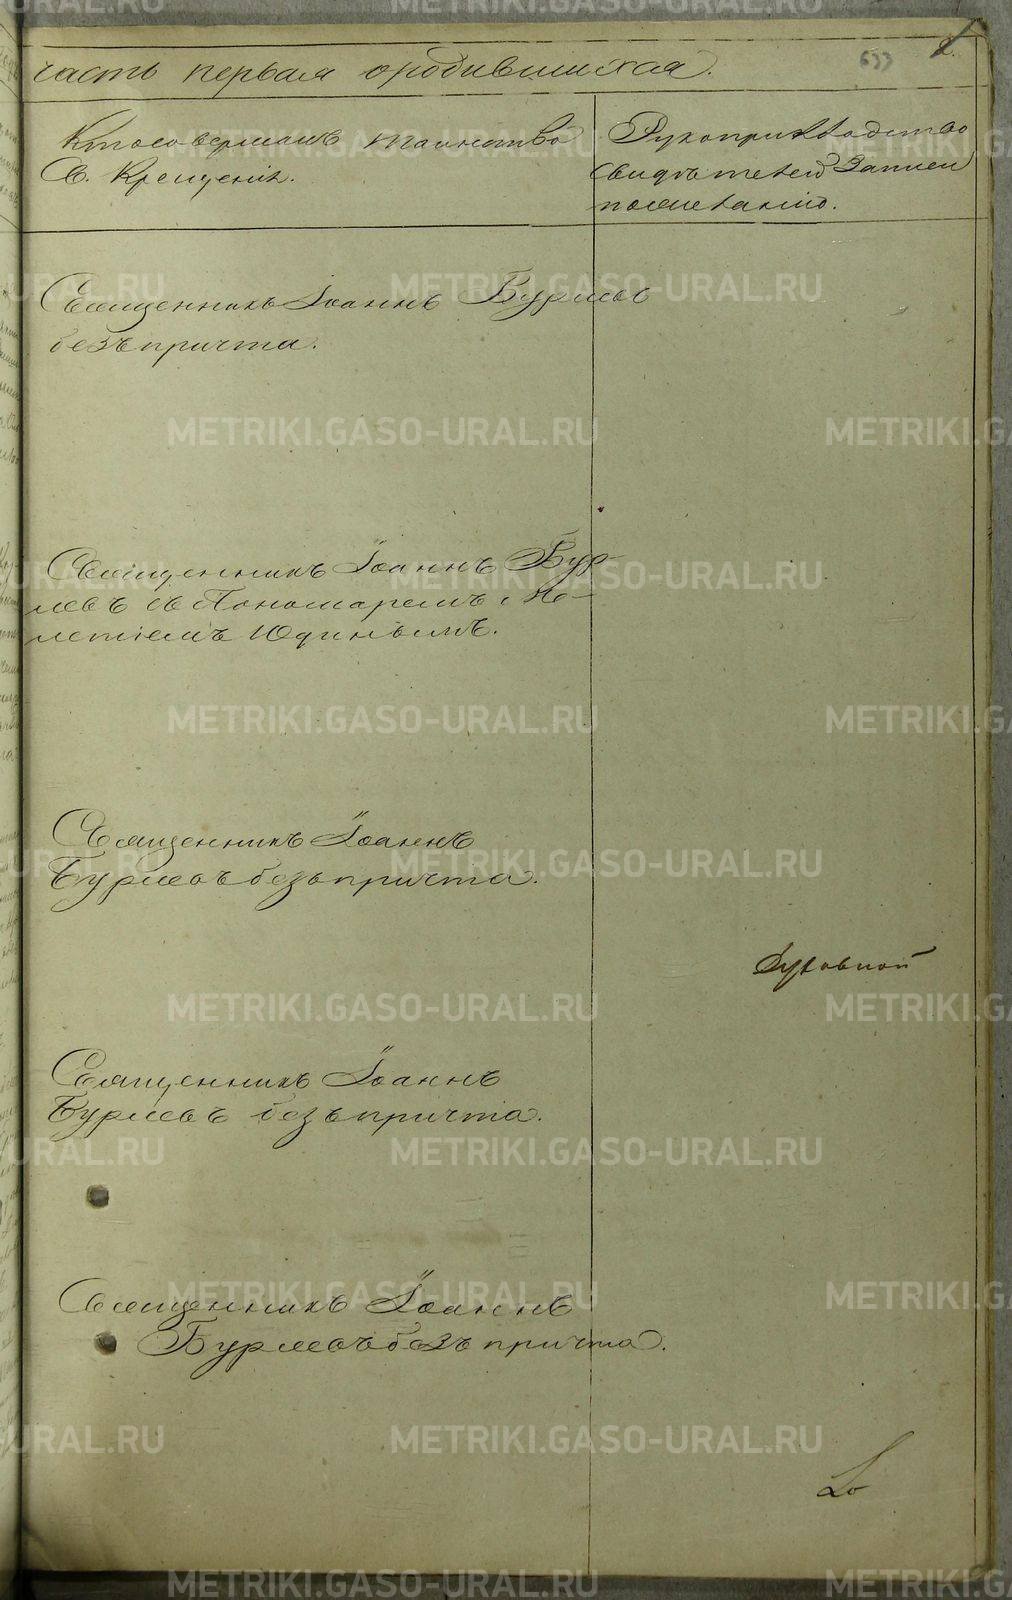 633
2.
часть первая ородившихся.
Кто совершалъ таинство
Св. Крещенія.
Рукоприкладство
свидѣтелей записи
пожеланію.
Священникъ Іоаннъ Бурмовъ
безъ причта.
Священникъ Іоаннъ Бур-
мовъ съ Пономаремъ Ме-
летіемъ Юдинымъ.
Священникъ Іоаннъ
Бурмовъ безъ причта.
Духовной
Священникъ Іоаннъ
Бурмовъ безъ причта.
Священникъ Іоаннъ
Бурмовъ безъ причта.
METRIKI.GASO-URAL.RU